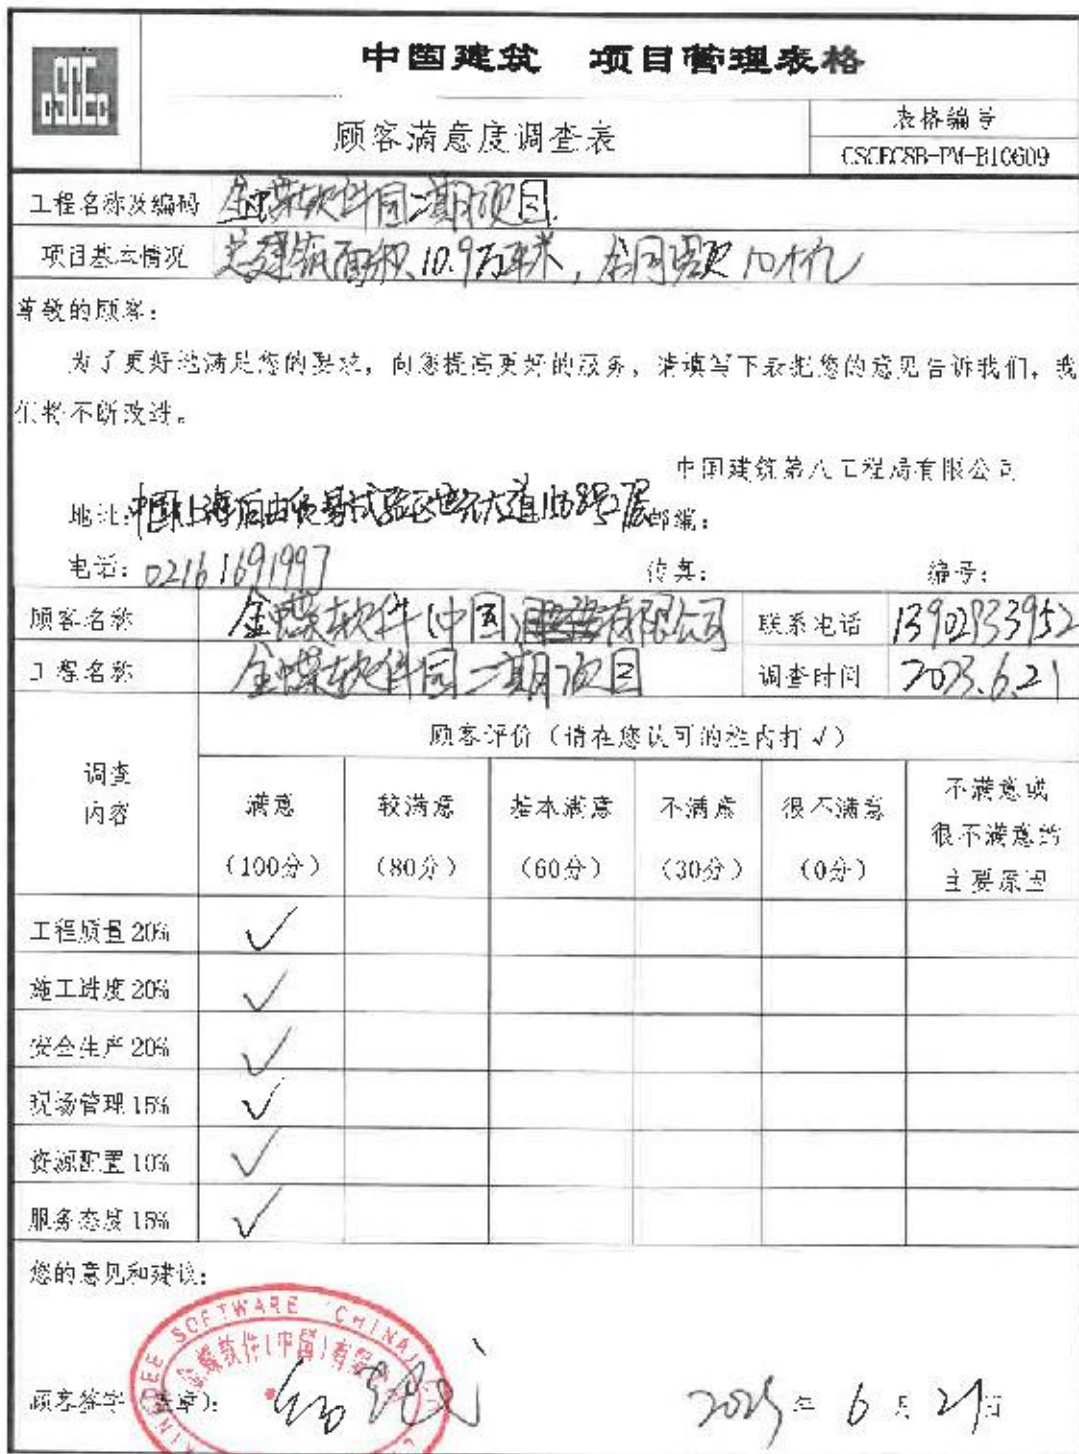 CSCEC
中国建筑 项目管理表格
顾客满意度调查表
表格编号
CSCEC8B-PM-B10609
工程名称及编码 金蝶软件园二期项目
项目基本情况 总建筑面积10.9万平米,合同额10.4亿
尊敬的顾客:
为了更好地满足您的要求,向您提高更好的服务,请填写下表把您的意见告诉我们,我
们将不断改进。
中国建筑第八工程局有限公司
地址:中国上海自由贸易试验区世纪大道1568号27层 邮编:
电话:02161691997 传真: 编号:
顾客名称 金蝶软件(中国)有限公司 联系电话 13902933952
工程名称 金蝶软件园二期项目 调查时间 2023.6.21
调查
内容
顾客评价(请在您认可的栏内打√)
满意
(100分)
较满意
(80分)
基本满意
(60分)
不满意
(30分)
很不满意
(0分)
不满意或
很不满意的
主要原因
工程质量20% ✓
施工进度20% ✓
安全生产20% ✓
现场管理15% ✓
资源配置10% ✓
服务态度15% ✓
您的意见和建议:
KINGDEE SOFTWARE (CHINA)
金蝶软件(中国)有限
顾客签字(盖章):
年 6 月 21 日